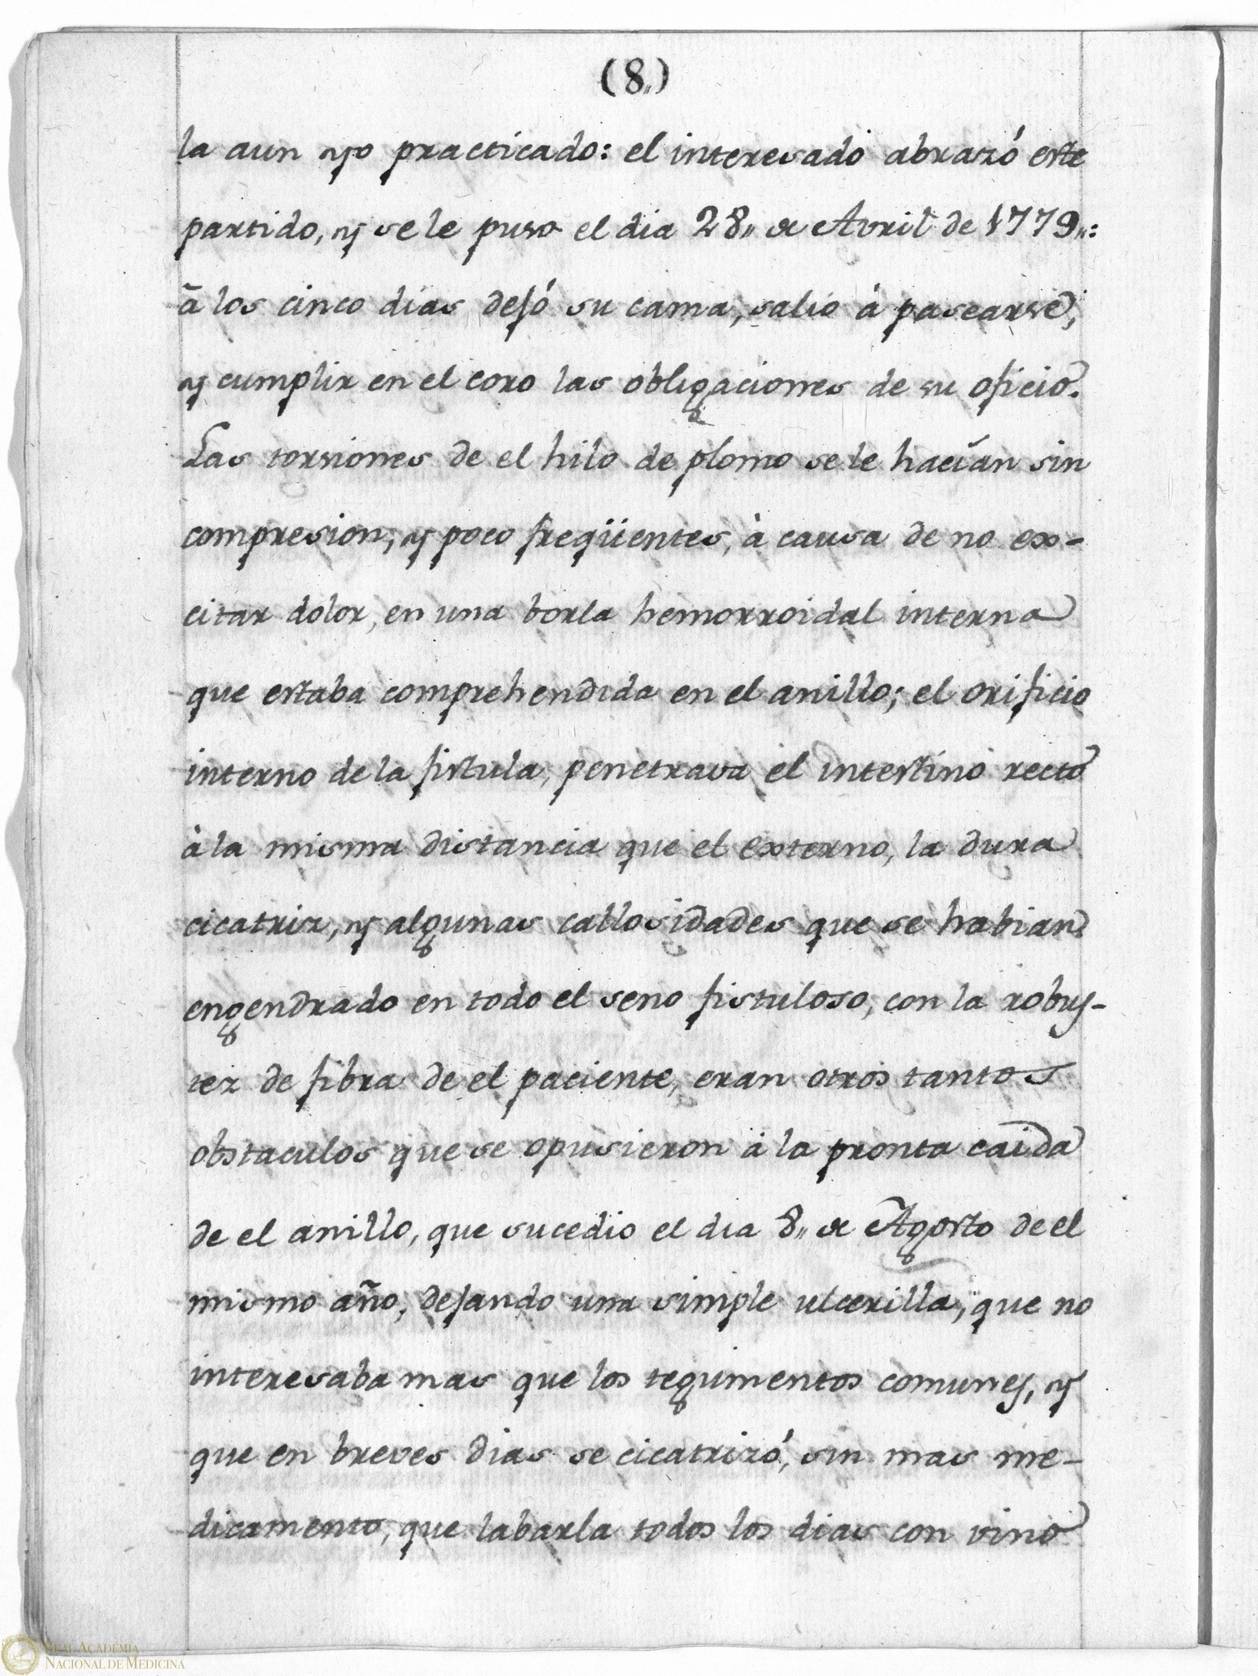 (8,,)
la aun yo practicado: el interesado abrazó este
partido, y se le puso el dia 28,, de Avril de 1779,,:
à los cinco dias dejó su cama, salio à pasearse,
y cumplir en el coro las obligaciones de su oficio.
Las torsiones de el hilo de plomo se le hacían sin
compresion, y poco freqüentes, à causa de no ex-
citar dolor, en una borla hemorroidal interna
que estaba comprehendida en el anillo; el orificio
interno de la fistula, penetrava el intestino recto
à la misma distancia que el externo, la dura
cicatriz, y algunas callosidades que se habian
engendrado en todo el seno fistuloso, con la robus-
tez de fibra de el paciente, eran otros tantos
obstaculos que se opusieron à la pronta caida
de el anillo, que sucedio el dia 8,, de Agosto de el
mismo año, dejando una simple ulcerilla, que no
interesaba mas que los tegumentos comunes, y
que en breves dias se cicatrizó, sin mas me-
dicamento, que labarla todos los dias con vino
REAL ACADEMIA
NACIONAL DE MEDICINA